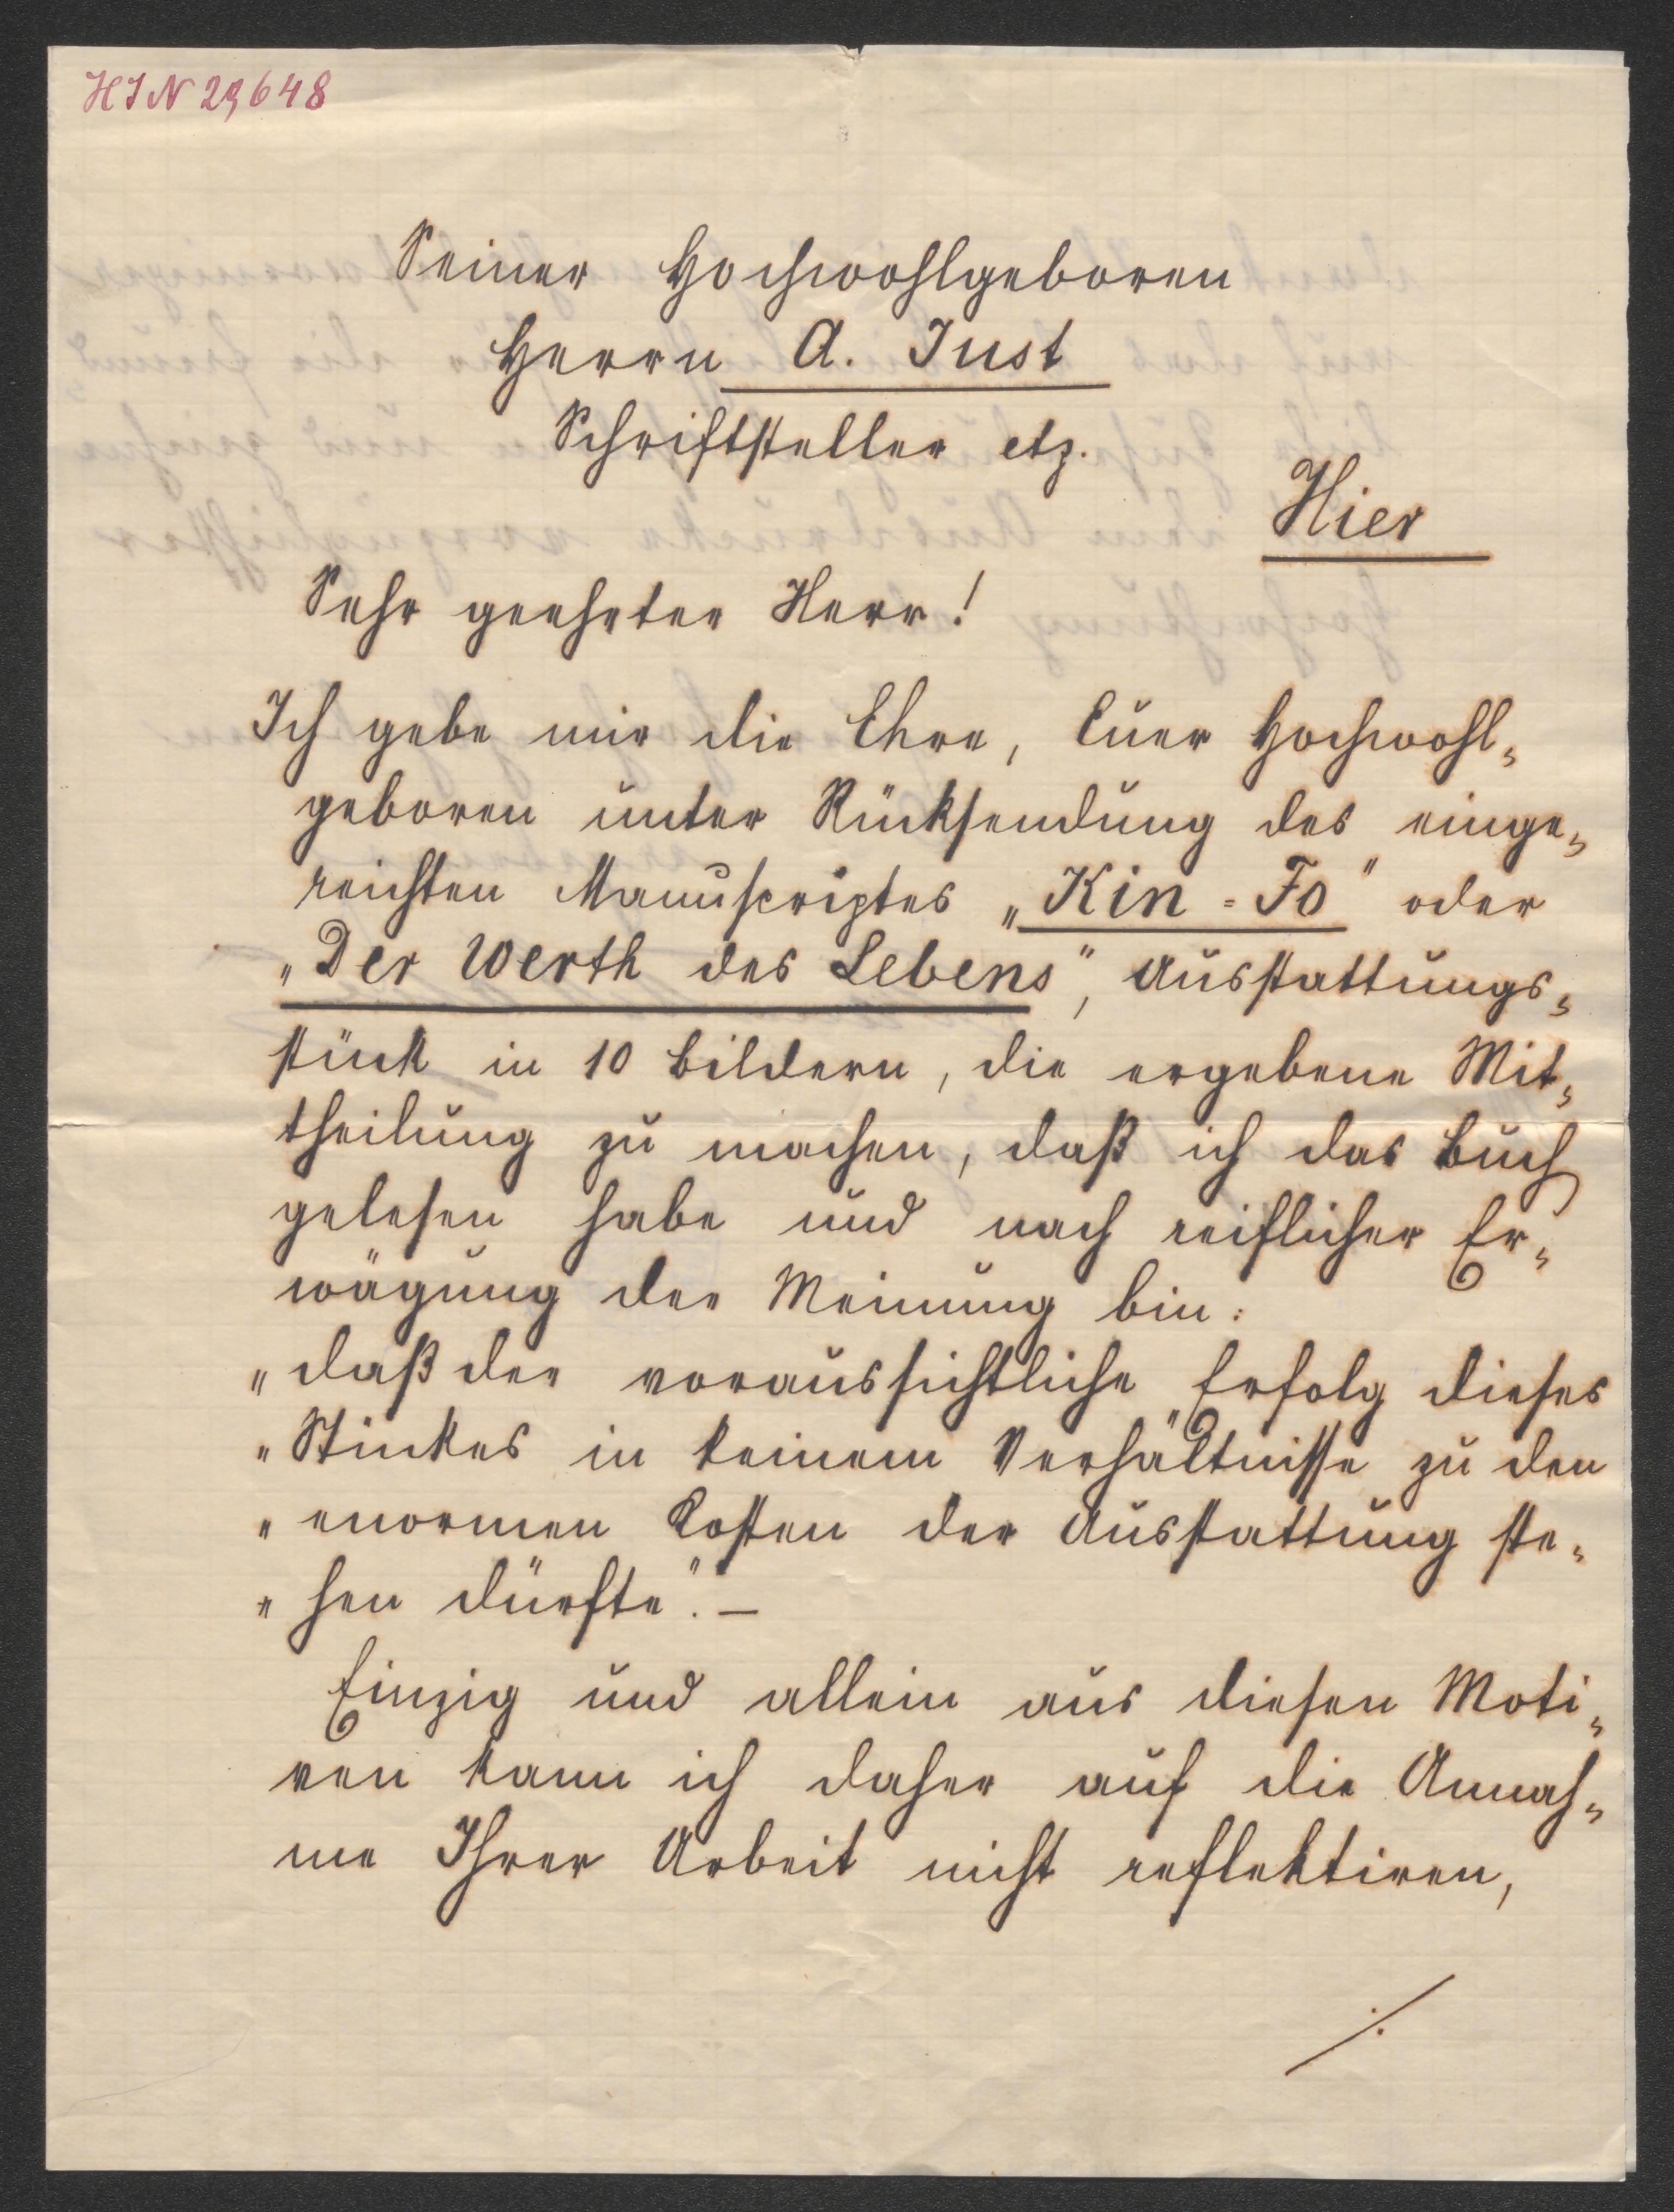 HIN 29,648
Seiner Hochwohlgeboren
Herrn A. Just
Schriftsteller etz.
Hier
Sehr geehrter Herr!
Ich gebe mir die Ehre, Euer Hochwohl-
geboren unter Rücksendung des einge-
reichten Manuscriptes „Kin-Fo" oder
„Der Werth des Lebens", Ausstattungs-
stück in 10 Bildern, die ergebene Mit-
theilung zu machen, daß ich das Buch
gelesen habe und nach reiflicher Er-
wägung der Meinung bin:
„daß der voraussichtliche Erfolg dieses
„Stückes in keinem Verhältnisse zu den
„enormen Kosten der Ausstattung ste-
„hen dürfte". —
Einzig und allein aus diesen Moti-
ven kann ich daher auf die Annah-
me Ihrer Arbeit nicht reflektiren,
./.